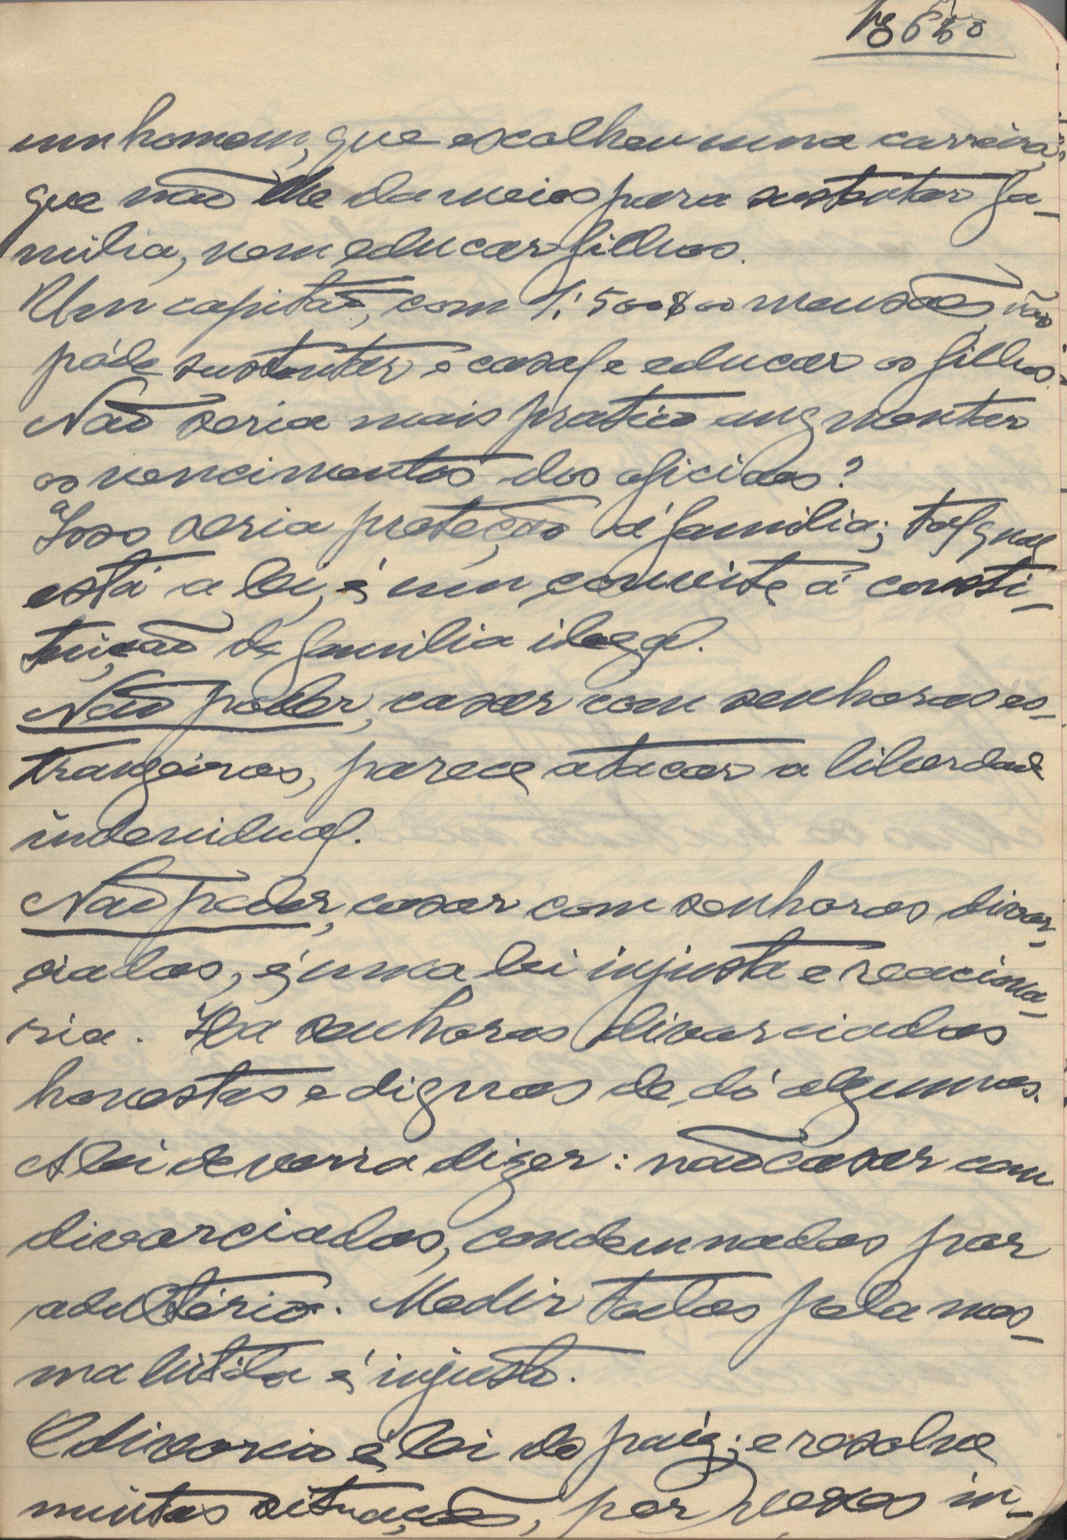 um homem, que escolheu uma carreira,
que não lhe da meios para sustentar fa-
milia, nem educar filhos.
Um capitão, com 1:500$00 mensaes, não
póde sustentar a casa, e educar os filhos.
Não seria mais pratico augmentar
os vencimentos dos oficiaes?
Isso seria proteção á familia; tal qual
está a lei, é um convite á consti-
tuição de familia ilegal.
Não poder, casar com senhoras es-
trangeiras, parece atacar a liberdade
indevidual.
Não poder, casar com senhoras divor-
ciadas, é uma lei injusta e reaciona-
ria. Ha senhoras divorciadas
honestas e dignas de dó algumas.
A lei deveria dizer: não casar com
divorciadas, condemnadas por
adultério. Medir todas pela mes-
ma bitóla é injusto.
O divorcio é lei do paiz; e resolve
muitas situações, por vezes in-